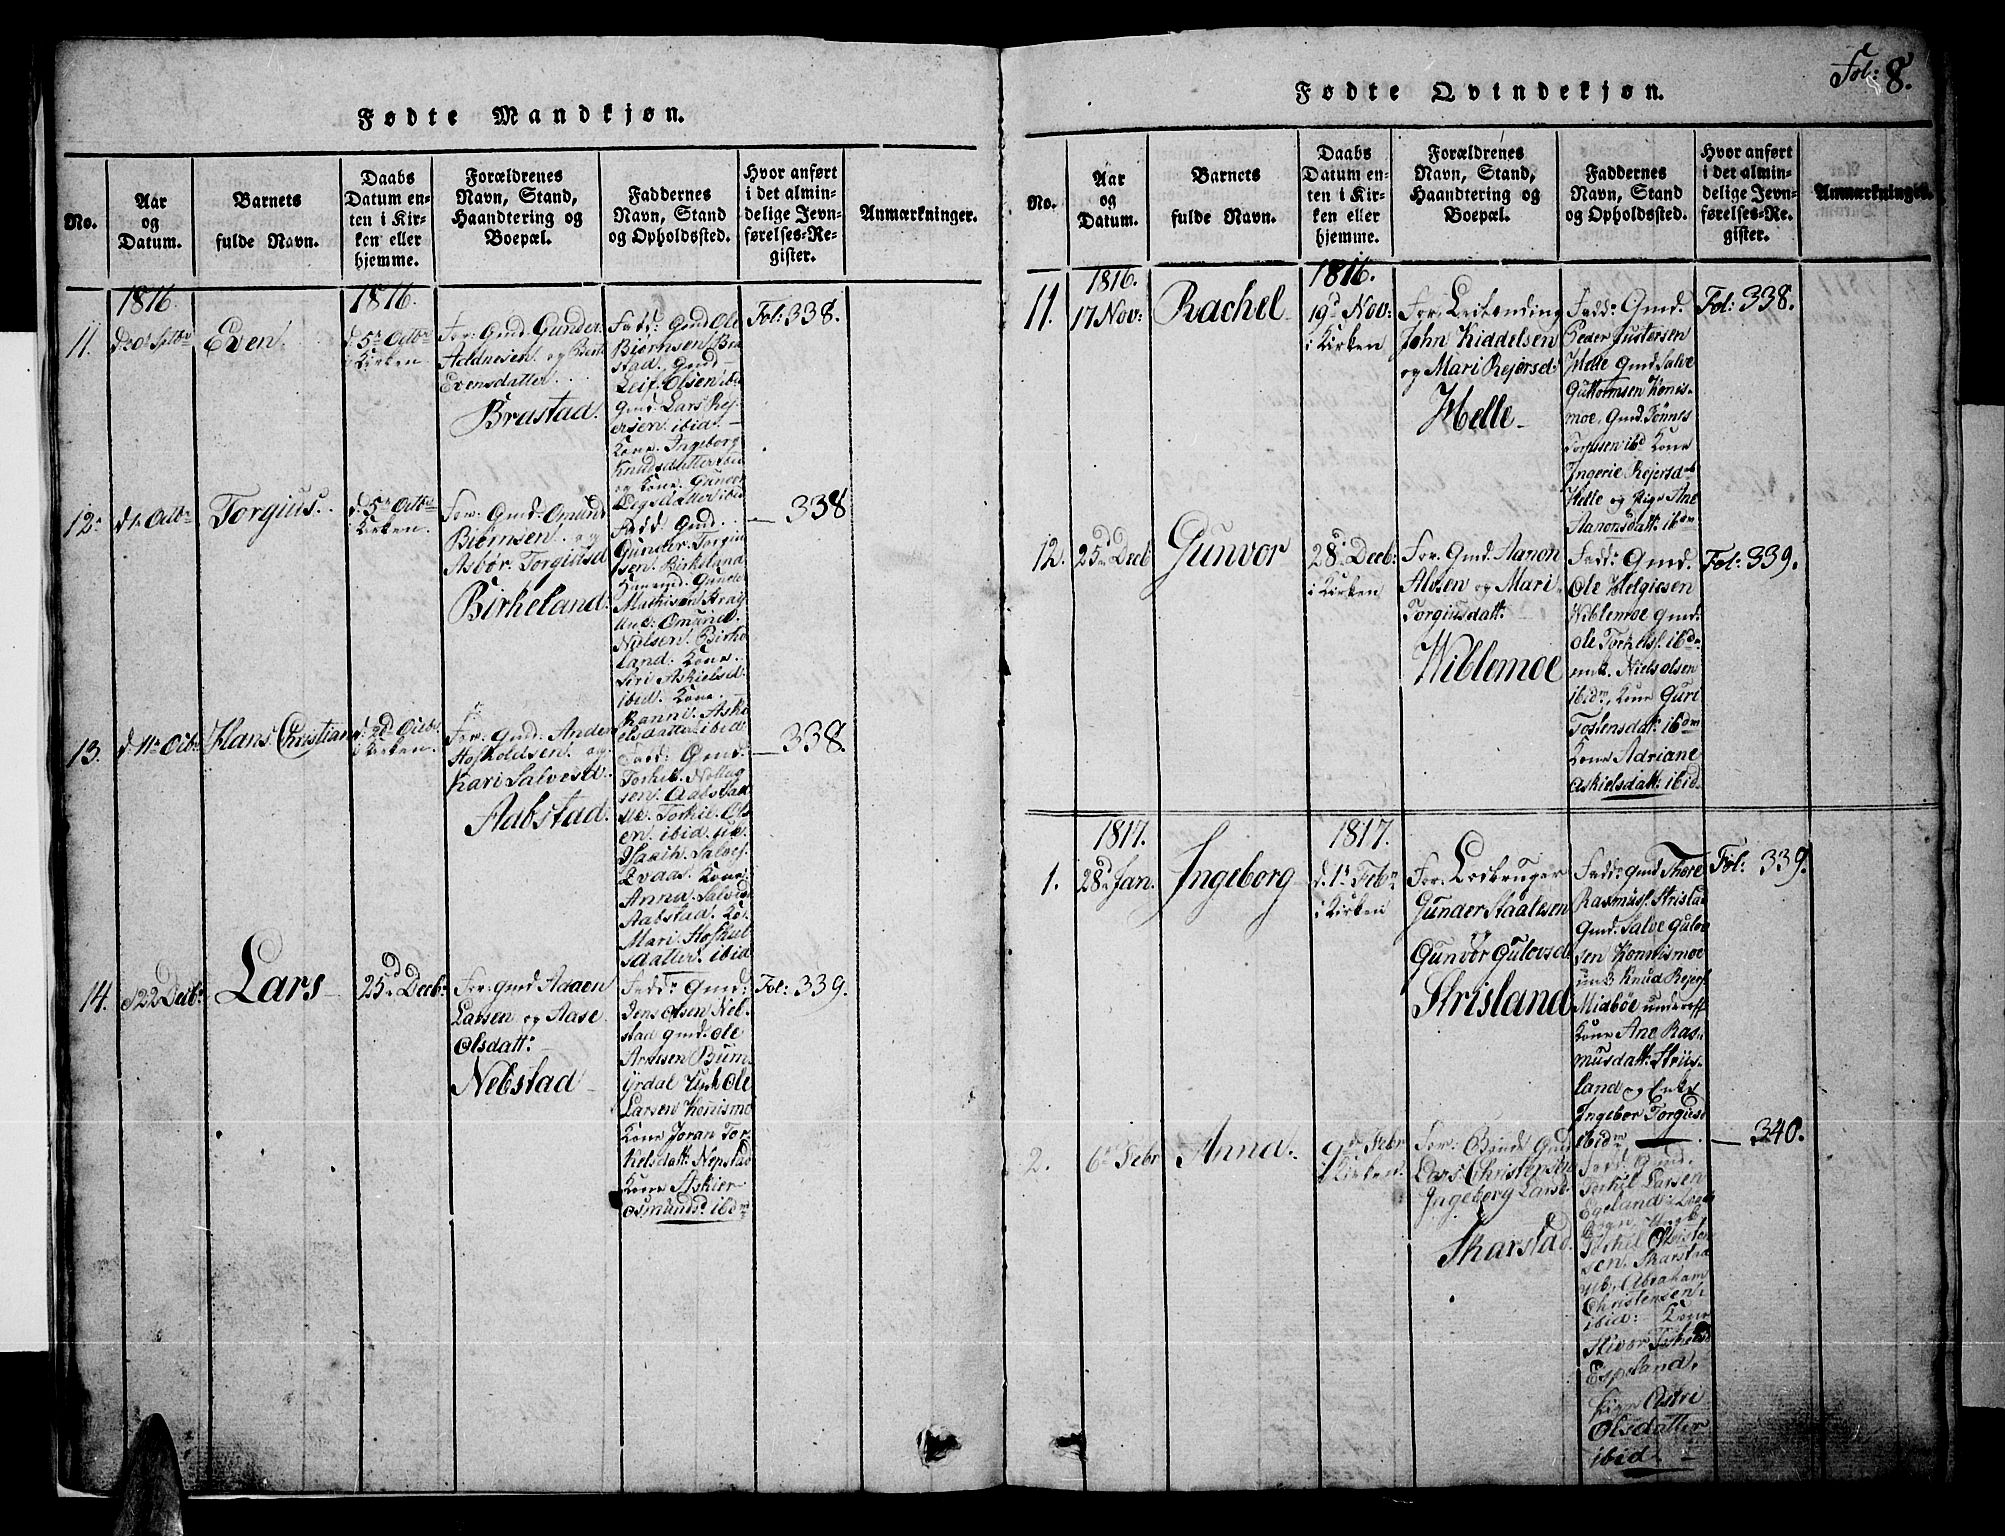 Fødte Mandkjøn.
No.
Aar
og
Datum.
Barnets
fulde Navn.
Daabs
Datum en-
ten i Kir-
ken eller
hjemme.
Forældrenes
Navn, Stand,
Haandtering og
Boepæl.
Faddernes
Navn, Stand
og Opholdssted.
Hvor anført
i det almin-
delige Jevn-
førelses-Re-
gister.
Anmærkninger.
1816.
11.
Even.
1816.
d. 5te Octbr
i Kirken
For: Gmd: Gunder
Adnesen. og
Evensdatter.
Brastad.
Fadd: Gmd Ole
Biørnsen Bra
stad. Gmd
Leif. Olsen. ibid
Gmd: Lars Rej-
ersen. ibid.
Kone. Ingeborg
Knudsdatter ibid
og Kone. Gunvor
ibid
Fol: 338.
12.
d 1. Octbr
Torgius.
d. 5te Octbr
i Kirken.
For: Gmd: Omund
Biørnsen. og
Asbør. Torgiusd
Birkeland.
Fadd: Gmd.
Gunder. Torgiu
sen. Birkeland
Gunder
Mathisen
Omund.
Nielsen. Birke
land. Kone.
Siri Askielsd.
ibid. Kone.
Ranni. Aski
elsdatter ibid
338
13.
d. 11te Octbr
Hans Christian
i Kirken.
For: Gmd: Anders
Hofholdsen. og
Kari Salvesd.
Aabstad.
Fadd: Gmd:
Torkil.
sen: Aabstad
Torkil. Ols
en. ibid.
Salves.
Qvaas. Kone.
Anna. Salvesd
Aabstad. Ko.
Mari. Hofhol
sdatter. ibid
338.
14.
d 22 Decbr
Lars
25de Decbr
For: Gmd Adaen
Larsen og Aase
Olsdatt:
Nebstad
Fadd: Gmd:
Jens Olsen Neb-
stad Gmd: Ole
Arnesen
Ole
Larsen Konismo
Kone Joran Tor-
kelsdatt: Nepstad
Kone Askier
Osmunds: ibdm
Fol: 339.
Fol: 8.
Fødte Qvindekjøn.
No.
Aar
og
Datum.
Barnets
fulde Navn.
Daabs
Datum en-
ten i Kir-
ken eller
hjemme.
Forældrenes
Navn, Stand,
Haandtering og
Boepæl.
Faddernes
Navn, Stand
og Opholdssted.
Hvor anført
i det almin-
delige Jevn-
førelses-Re-
gister.
Anmærkninger.
1816.
11.
17 Nov:
Rachel
1816.
19d Nov:
i Kirken
For: Leilending
John Kiddelsen
og Mari Rejersd:
Helle
Fadd: Gmd.
Peder Justersen
Helle Gmd Salve
Guttormsen Konis-
moe, Gmd. Tønnes
ibd Kone
Ingerie Rejersd
Helle og Pige Ane
Aanonsdatt: ibdm
Fol: 338.
12.
25de Decb
Gunvor
28de Decb:
i Kirken
For. Gmd. Aanon
Alvsen og Mari
Torgiusdatt:
Wiblemoe
Fadd: Gmd:
Ole Helgiesen
Wiblemoe Gmd:
Ole Torkels. ibdm
unk. Niels Olsen
ibidm, Kone Guri
Tostensdatt: ibdm
Kone Adriane
Askielsdatt: ibid
Fol: 339.
1817.
1.
28de Jan.
Ingeborg
1817.
d. 1te Febr
i Kirken
For: Lodbruger
Gunder Staalesen
Gunvor Gulovsd
Strisland
Fadd: Gmd Thore
Rasmuss. Strisla
Gmd: Salve Gulov
sen Konnismoe
unk Knud Rejers
Midbøe underoff
Kone Ane Ras-
musdatt: Striis-
land og Enke
Ingebor Torgiusd
ibidm
Fol: 339.
2.
6te Febr
Anna.
9de Febr
i Kirken.
For: Bonde Gmd
Lars Christensen
Ingeborg Larsd:
Skarstad.
Fadd: Gmd.
Torkel Larsen
Egeland:
Sogn. Ungk.
Torkel Christen
sen. Skarstad
Abraham
Christensen.
ibid: Kone
Espeland.
Pige Astri
Olsdatter
ibid.
340.